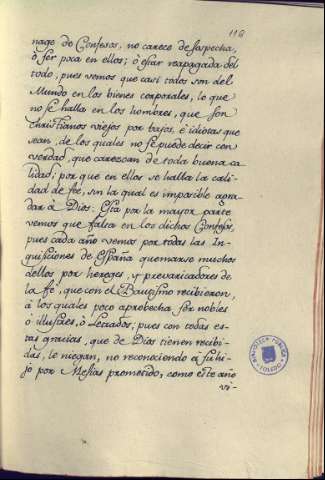 116
nage de Confesos, no carece de sospecha,
ó ser poca en ellos; ó estar reapagada del
todo, pues vemos que casi todos son del
Mundo en los bienes corporales, lo que
no se halla en los hombres, que son
christianos viejos por bajos, é idiotas que
sean, de los quales no se puede decir con
verdad, que carescan de toda buena ca
lidad; por que en ellos se halla la cali
dad de feé, sin la qual es imposible agra-
dar á Dios: Esta por la mayor parte
vemos que falta en los dichos Confesos,
pues cada año vemos por todas las In-
quisiciones de España quemarse muchos
dellos por hereges, y prevaricadores de
la fé, que con el Bautismo recibieron,
á los quales poco aprobecha ser nobles
ó illustres, ó Letrados; pues con todas es-
tas gracias, que de Dios tienen recibi-
das, le niegan, no reconociendo á su hi-
jo por Mesias prometido, como este año
vi-
BIBLIOTECA PUBLICA
TOLEDO